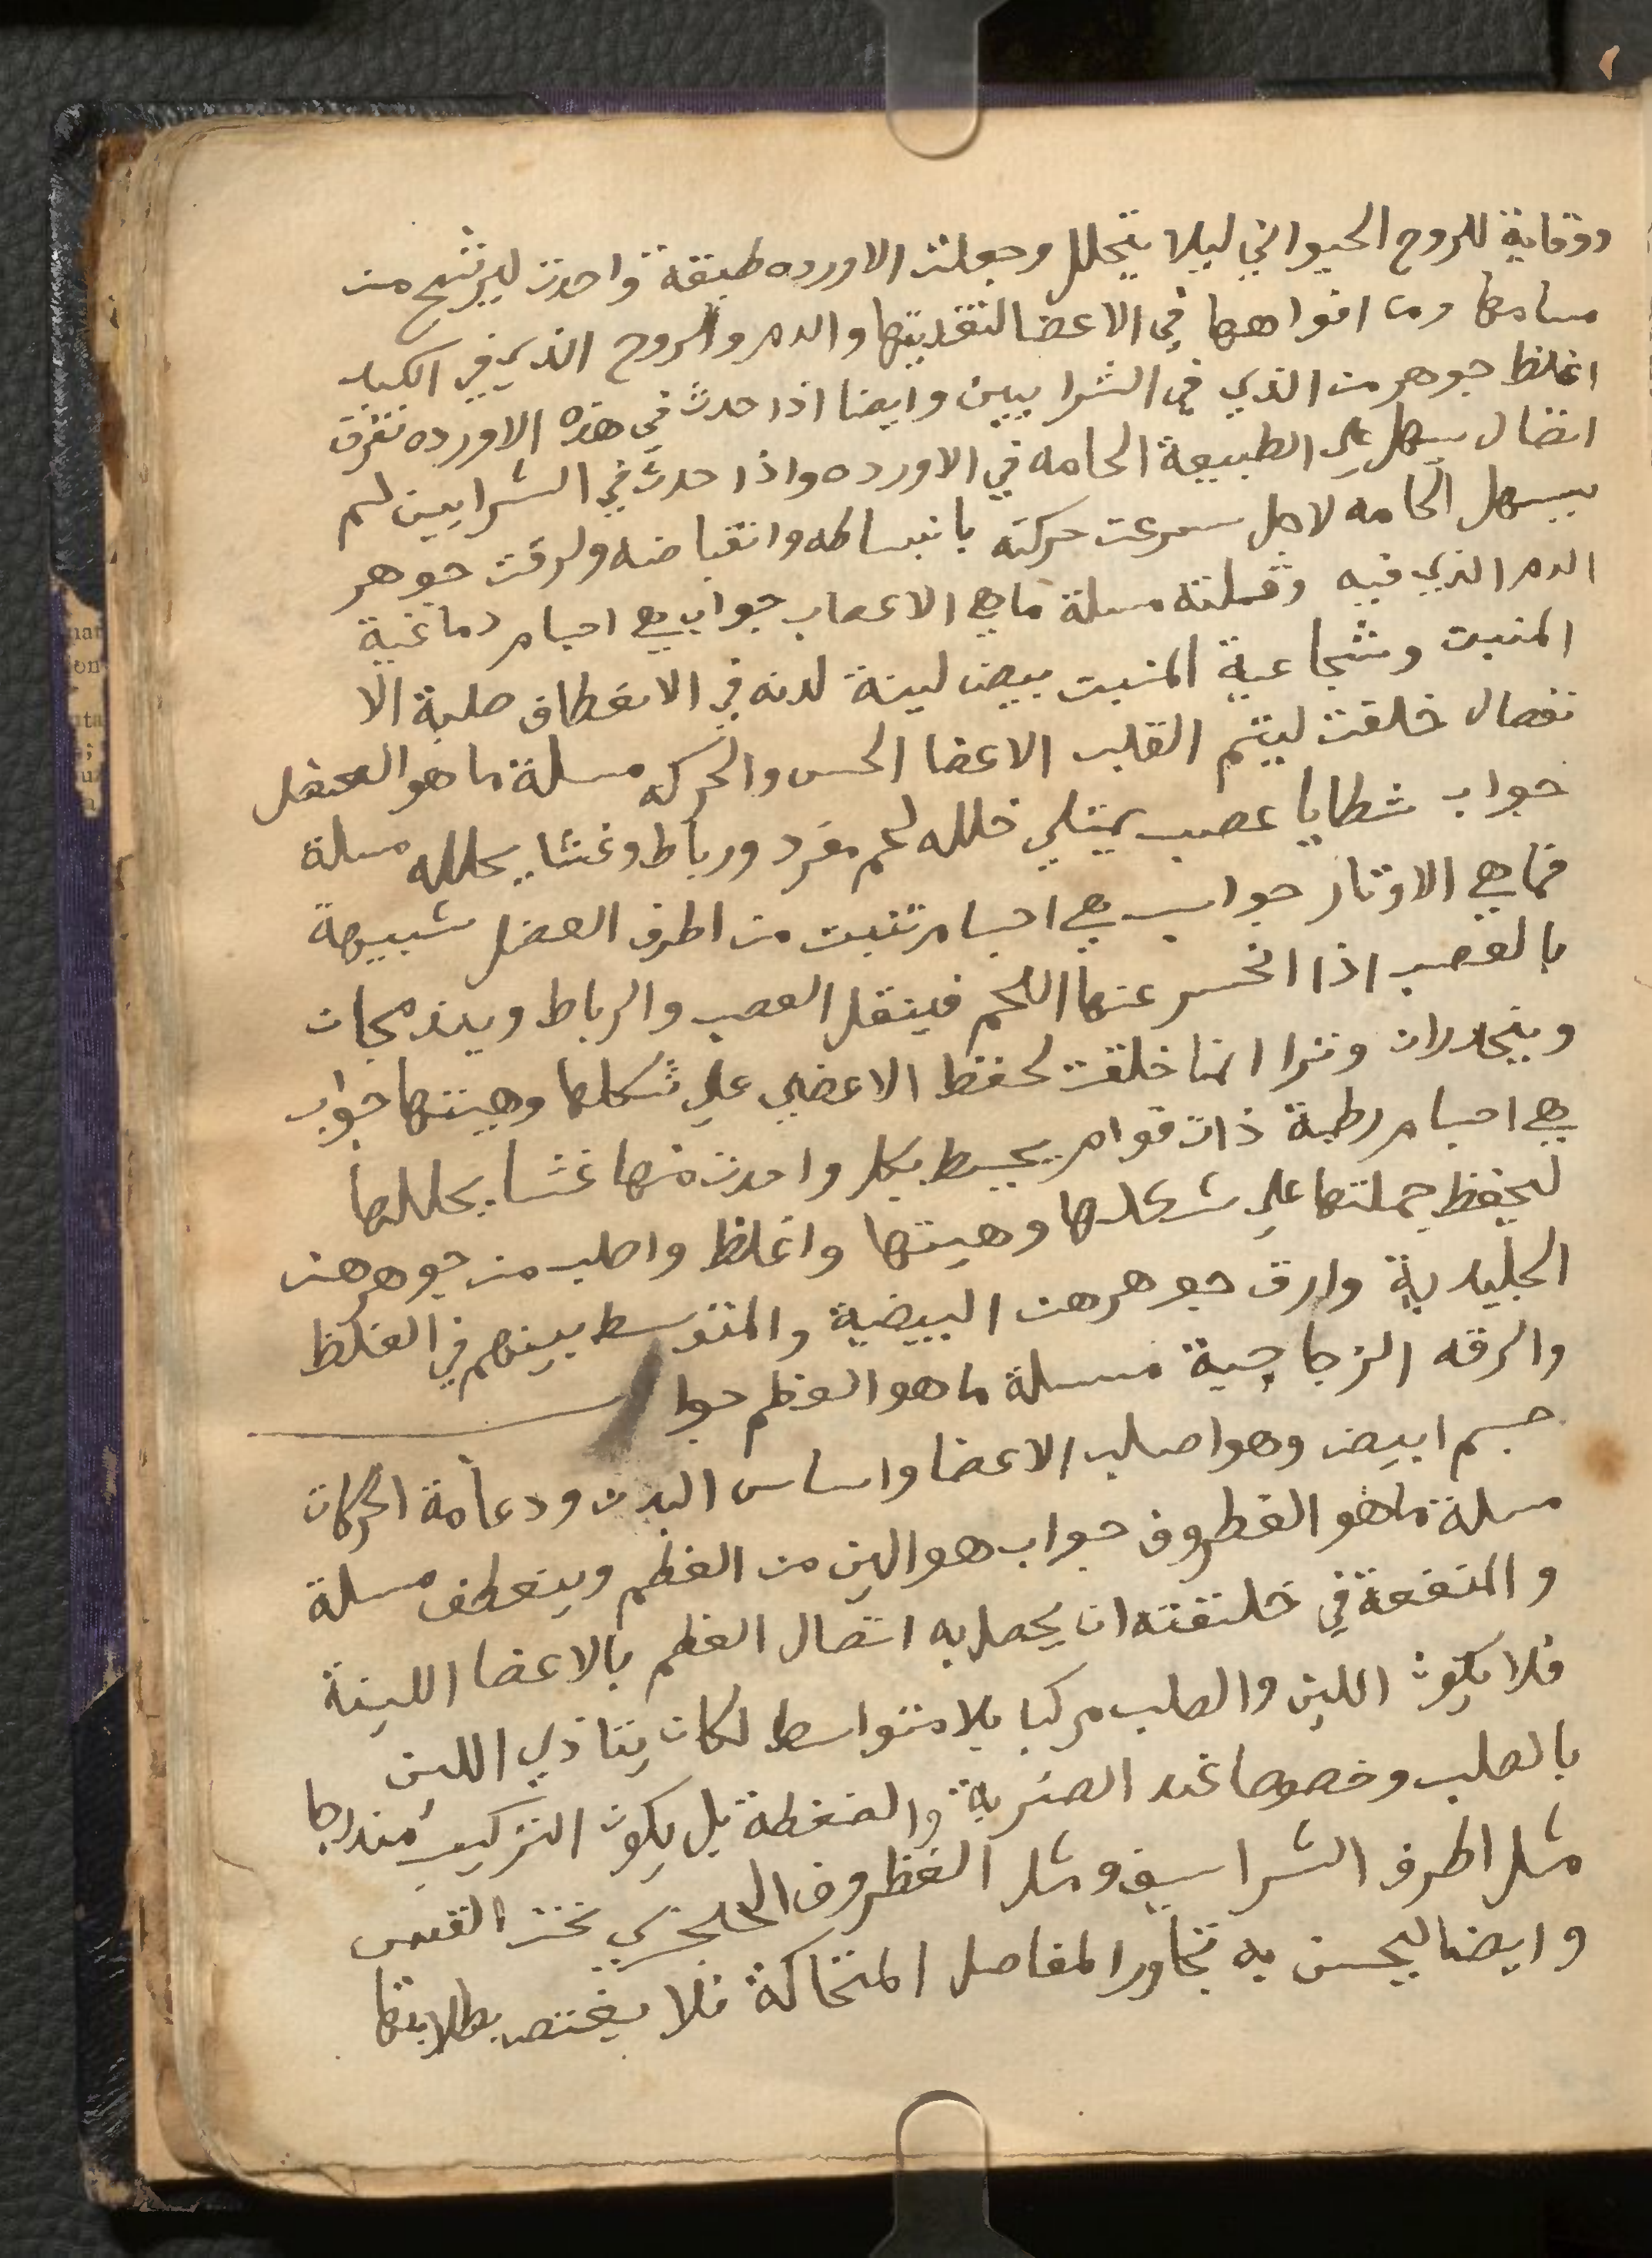 ووقاية للروح الحيواني ليلا يتحلل وجعلت الاورده طبقة واحدت ليرشح من
مسامها ومن افواهها في الاعضا لتغديتها والدم والروح الذي في الكبد
اغلظ جوهر من الذي في الشرايين وايضا اذا حدث في هذه الاورده تفرق
اتصال سهل علي الطبيعة الحامه في الاورده واذا حدث في الشرايين لم
يسهل الحامه لاجل سرعت حركته بانبساطه وانقباضه ولرقت جوهر
الدم الذي فيه وقملته مسلة ماهي الاعصاب جواب هي اجسام دماغية
المنبت ونخاعية المنبت بيض لينة لدنه في الانعطاف صلبة الا
نفصال خلقت ليتم القلب الاعضا الحس والحركه مسلة ما هو العضل
جواب شظايا عصب يمتلي خلله لحم مفرد ورباط وغشا يحلله مسلة
فما هي الاوتار جواب هي اجسام تنبت من اطرف العضل شبيهة
بالعصب اذا انحسر عنها اللحم فينفل العصب والرباط ويندمجان
وينحدران وترا انما خلقت لحفظ الاعضي علي شكلها وهيتها جواب
هي اجسام رطبة ذات قوام يحيط بكل واحدت منها غشا يحللها
ليحفظ جملتها علي شكلها وهيتها واغلظ واصلب من جوهرهن
الجليدية وارق جوهرهن البيضية والمتوسط بينهم في الغلظ
والرقه الزجاجية مسلة ما هو العظم جواب
جسم ابيض وهو اصلب الاعضا واساس البدن ودعامة الحركات
مسلة ما هو الغطروف جواب هو الين من العظم وينعطف مسلة
والمنفعة في خلتقته ان يحصل به اتصال العظم بالاعضا اللينة
فلا يكون اللين والصلب مركبا بلا متواسط لكان يتاذي اللين
بالصلب وخصوصا عند الضربة والضغطة بل يكون التركيب مندرجا
مثل اطرف الشراسيف ومثل الغظروف الحنجري تحت القص
وايضا ليحسن به تجاور المفاصل المتحاكة فلا يغتص بطلابتها